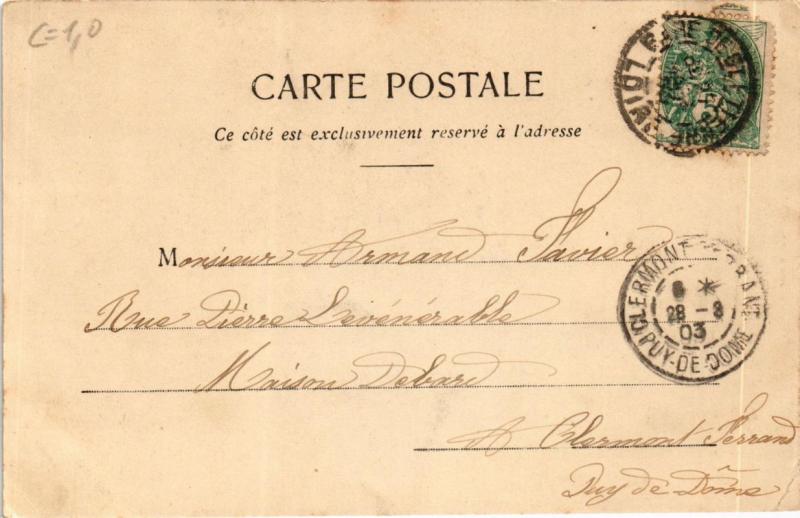 C=1,0
CARTE POSTALE
Ce côté est exclusivement reservé à l'adresse
Monsieur Armand Favier
Rue Pierre Levénérable
Maison Debard
A Clermont Ferrand
Puy de Dôme
CLERMONT-FERRAND
6 *
28 - 3
03
PUY-DE-DOME
LOIRE